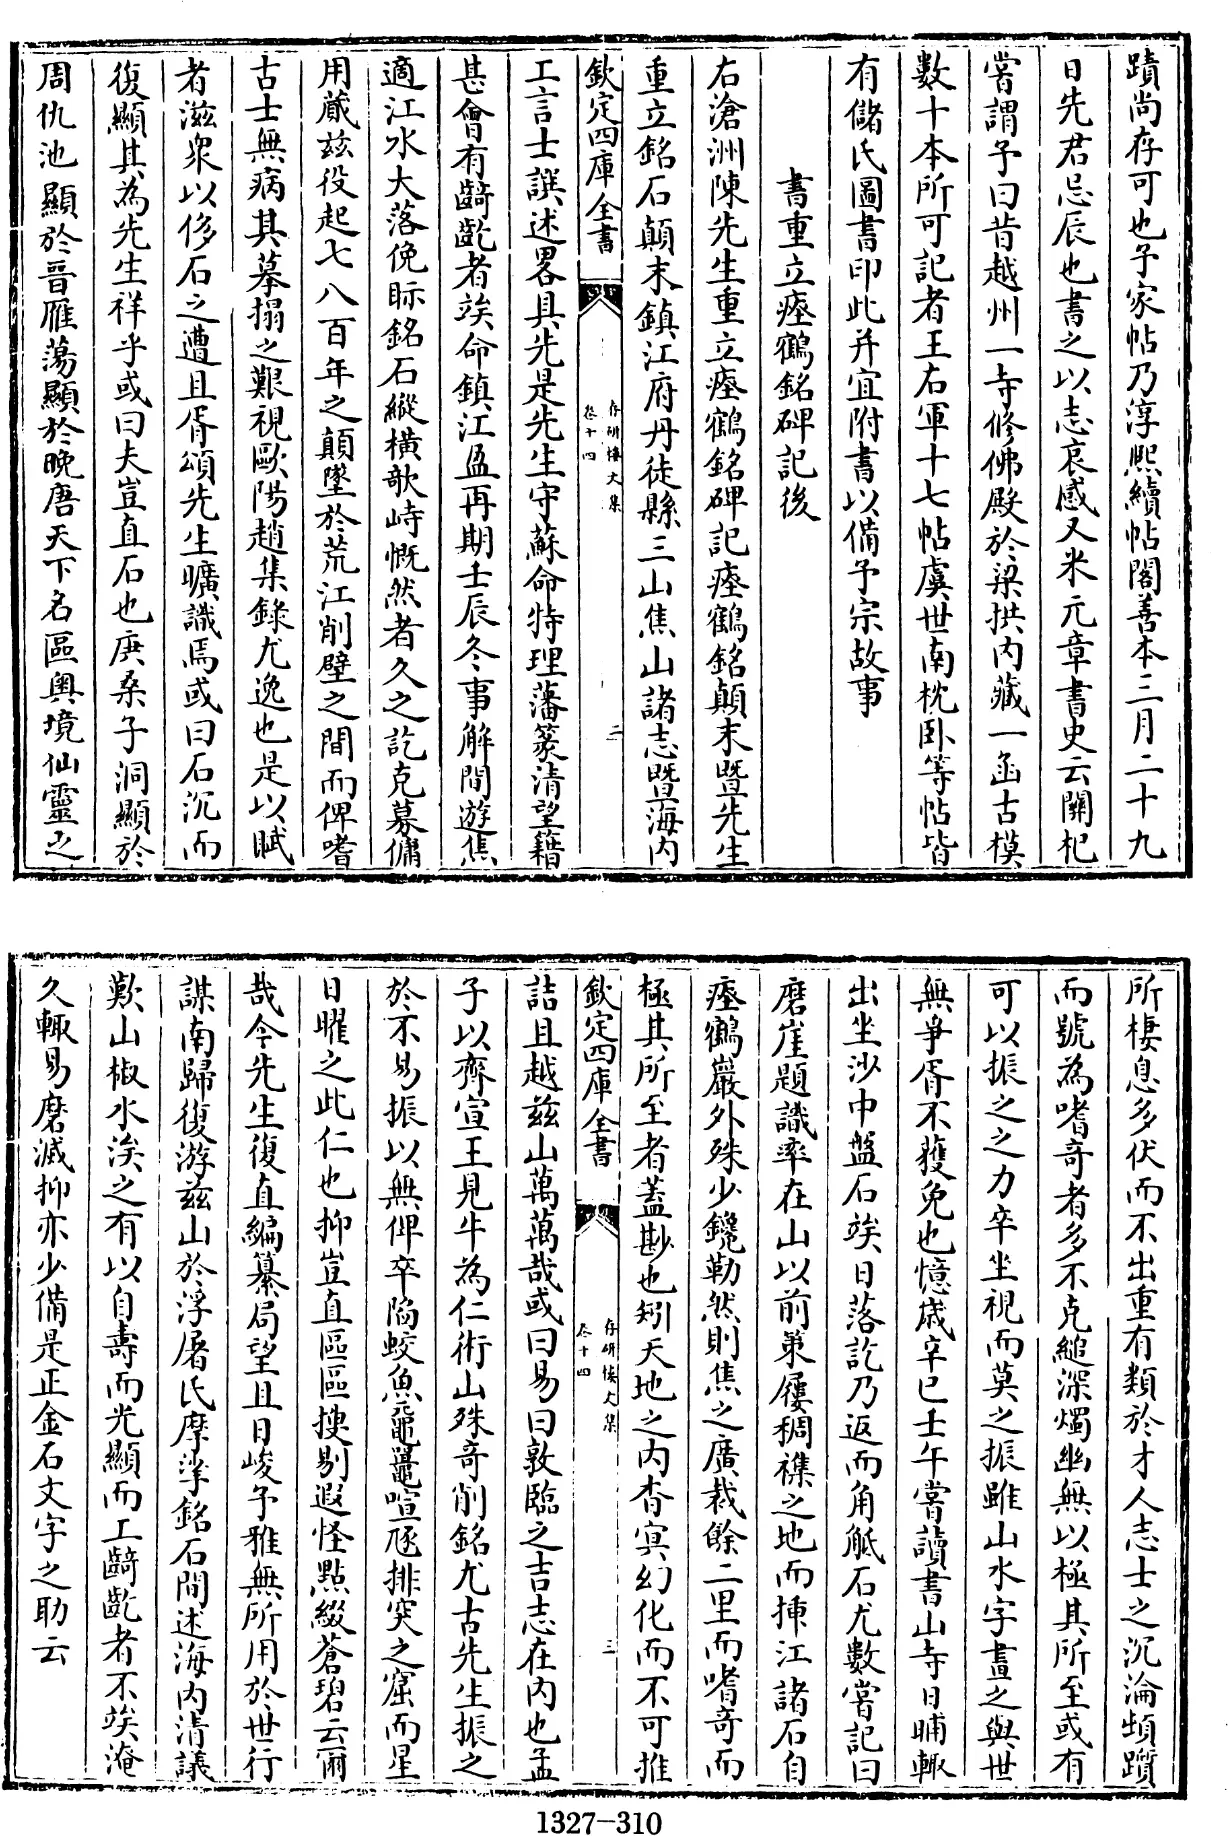 蹟尚存可也予家帖乃淳熙續帖閣善本三月二十九
日先君忌辰也書之以志哀感又米元章書史云關杞
嘗謂予曰昔越州一寺修佛殿於梁拱内藏一函古模
數十本所可記者王右軍十七帖虞世南枕卧等帖皆
有儲氏圖書印此并宜附書以備予宗故事
書重立瘞鶴銘碑記後
右滄洲陳先生重立瘞鶴銘碑記瘞鶴銘顛末暨先生
重立銘石顛末鎮江府丹徒縣三山焦山諸志暨海内
欽定四庫全書
存研樓文集
卷十四
二
工言士譔述畧具先是先生守蘇命特理藩篆清望籍
甚會有齮齕者竢命鎮江盈再期壬辰冬事解間遊焦
適江水大落俛眎銘石縱横欹峙慨然者久之訖克募傭
用蕆兹役起七八百年之顛墜於荒江削壁之間而俾嗜
古士無病其摹搨之艱視歐陽趙集錄尤逸也是以賦
者滋衆以侈石之遭且胥頌先生曠識焉或曰石沉而
復顯其為先生祥乎或曰夫豈直石也庚桑子洞顯於
周仇池顯於晉雁蕩顯於晚唐天下名區奥境仙靈之
所棲息多伏而不出重有類於才人志士之沉淪蹎躓
而號為嗜奇者多不克縋深燭幽無以極其所至或有
可以振之之力卒坐視而莫之振雖山水字畫之與世
無爭胥不獲免也憶歲辛巳壬午嘗讀書山寺日晡輙
出坐沙中盤石竢日落訖乃返而角觝石尤數嘗記曰
磨崖題識率在山以前第屨稠襍之地而插江諸石自
瘞鶴巖外殊少鑱勒然則焦之廣裁餘二里而嗜奇而
極其所至者蓋尠也矧天地之内杳冥幻化而不可推
欽定四庫全書
存研樓文集
卷十四
三
詰且越兹山萬萬哉或曰易曰敦臨之吉志在内也孟
子以齊宣王見牛為仁術山殊奇削銘尤古先生振之
於不易振以無俾卒陷蛟魚黿鼉喧豗排突之窟而星
日曜之此仁也抑豈直區區搜剔遐怪點綴蒼碧云爾
哉今先生復直編纂局望且日峻予雅無所用於世行
謀南歸復游兹山於浮屠氏摩挲銘石間述海内清議
歎山椒水涘之有以自壽而光顯而工齮齕者不竢淹
久輙易磨滅抑亦少備是正金石文字之助云
1327-310